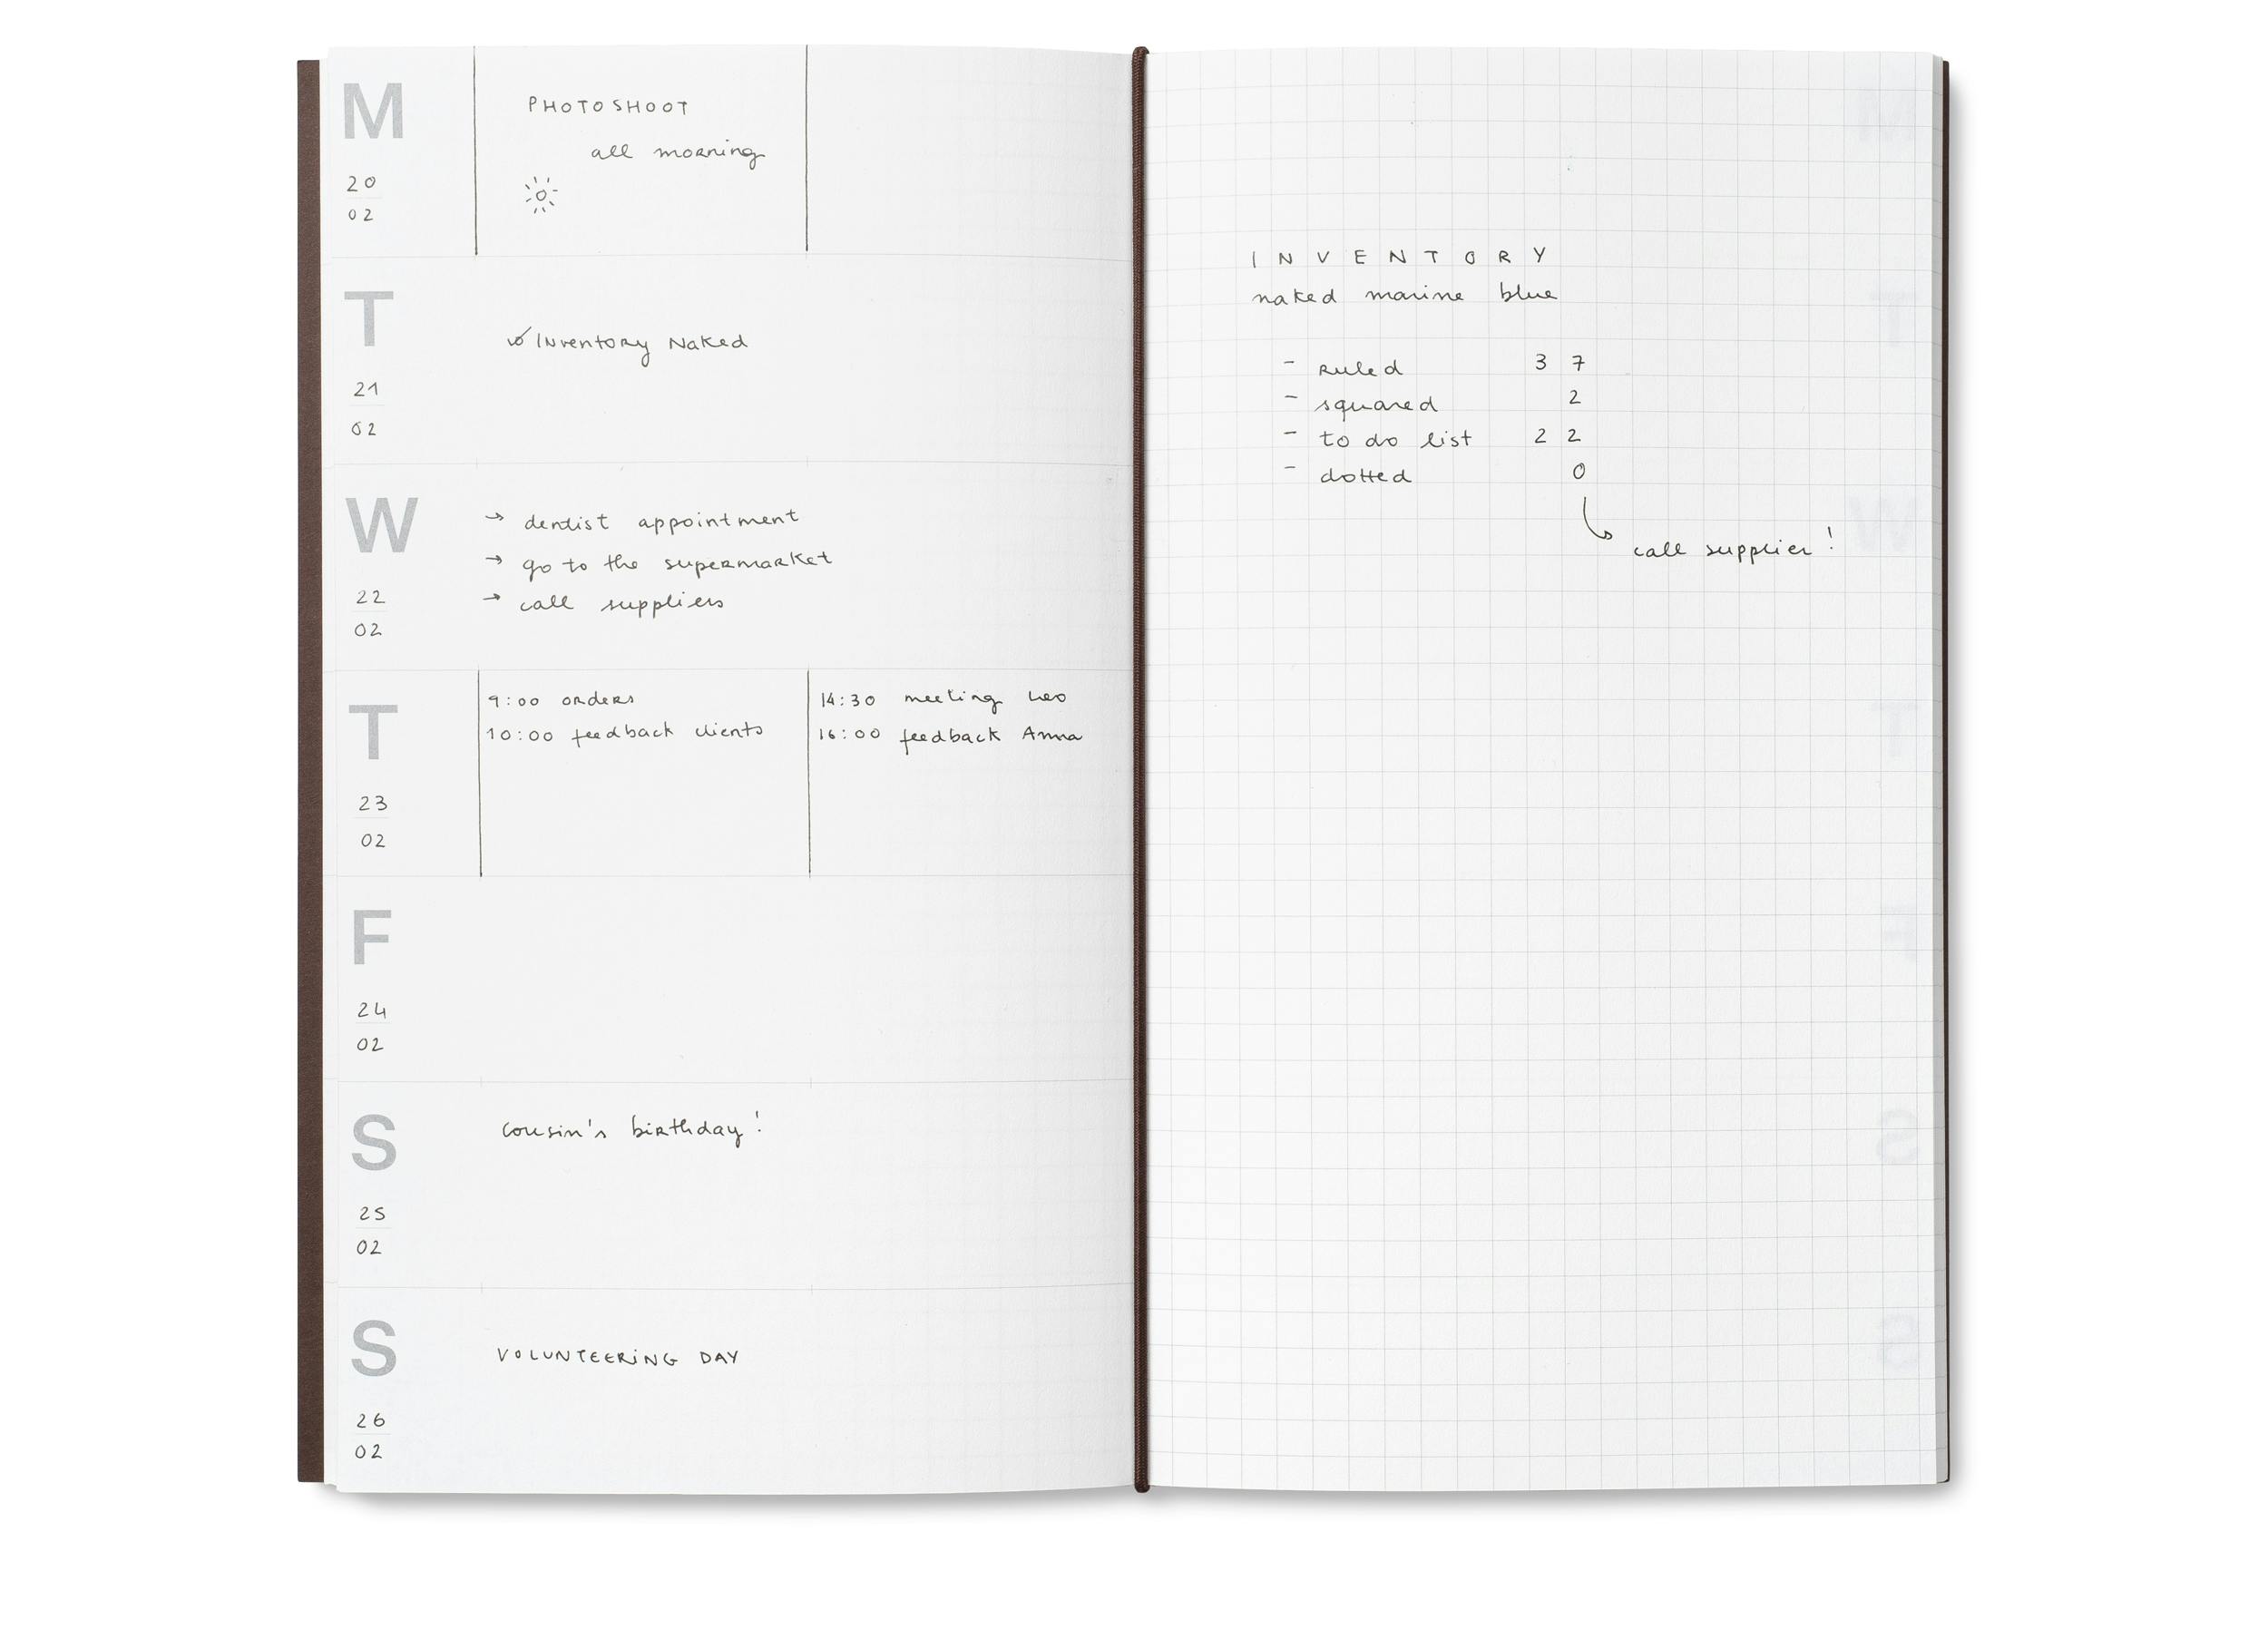 M
20
02
PHOTOSHOOT
all morning
T
21
02
Inventory Naked
W
22
02
→ dentist appointment
→ go to the supermarket
→ call suppliers
T
23
02
9:00 orders
10:00 feedback clients
14:30 meeting Leo
16:00 feedback Anna
F
24
02
S
25
02
cousin's birthday!
S
26
02
VOLUNTEERING DAY
INVENTORY
naked marine blue
- ruled 37
- squared 2
- to do list 22
- dotted 0
call supplier!